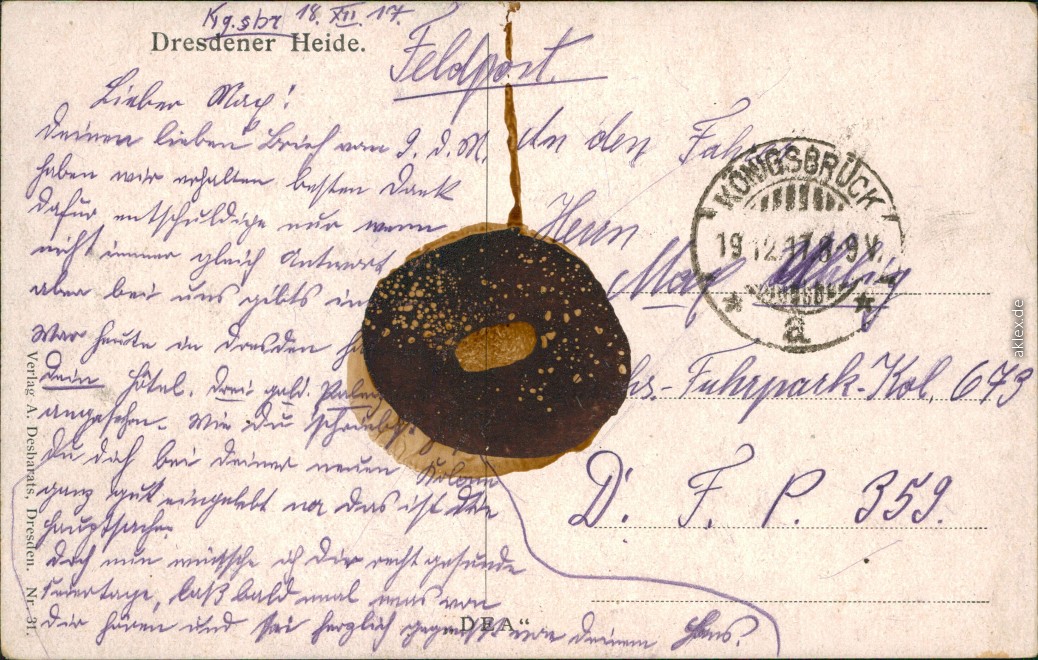 Kgsbr 18. XII. 17.
Dresdener Heide.
Feldpost.
Lieber Max!
Deinen lieben Brief vom 9. d. M.
haben wir erhalten besten Dank
dafür entschuldige nur wenn
nicht immer gleich Antwort
aber bei uns gibts im
War heute in Dresden
Dein Hôtel. drei gold.
angesehn. Wie Du schreibst
Du dich bei deiner neuen Kolonn
ganz gut eingelebt na das ist die
Hauptsache.
Doch nun wünsche ich Dir recht gesunde
Feiertage, laß bald mal was von
Dir hören und sei herzlich gegrüßt von deinem Hans.
An den
Herrn
Max
Fuhrpark-Kol. 673
D. F. P. 359.
KÖNIGSBRÜCK
19.12.17. 8-9 V.
a
Verlag A. Desbarats, Dresden. Nr. 31.
DEA"
aklex.de